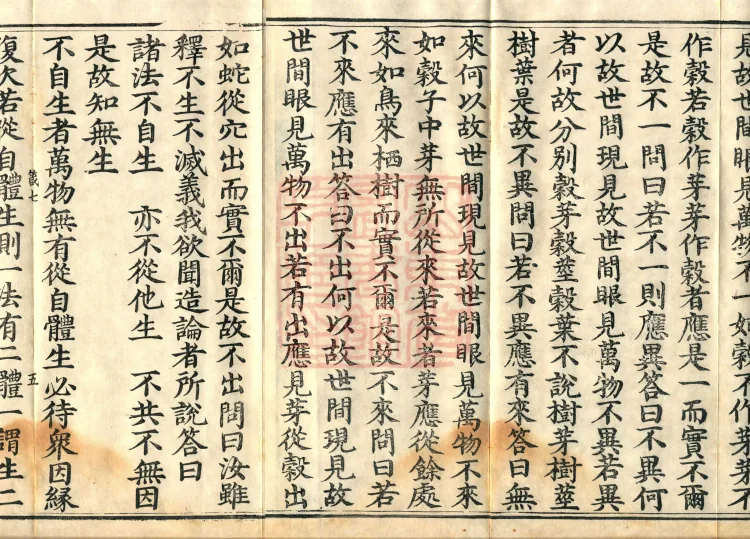 是故世間眼見萬物不一如穀不作芽芽不
作穀若穀作芽芽作穀者應是一而實不爾
是故不一問曰若不一則應異答曰不異何
以故世間現見故世間眼見萬物不異若異
者何故分別穀芽穀莖穀葉不說樹芽樹莖
樹葉是故不異問曰若不異應有來答曰無
來何以故世間現見故世間眼見萬物不來
如穀子中芽無所從來若來者芽應從餘處
來如鳥來栖樹而實不爾是故不來問曰若
不來應有出答曰不出何以故世間現見故
世間眼見萬物不出若有出應見芽從穀出
如蛇從穴出而實不爾是故不出問曰汝雖
釋不生不滅義我欲聞造論者所說答曰
諸法不自生 亦不從他生 不共不無因
是故知無生
不自生者萬物無有從自體生必待眾因緣
五
復次若從自體生則一法有二體一謂生二